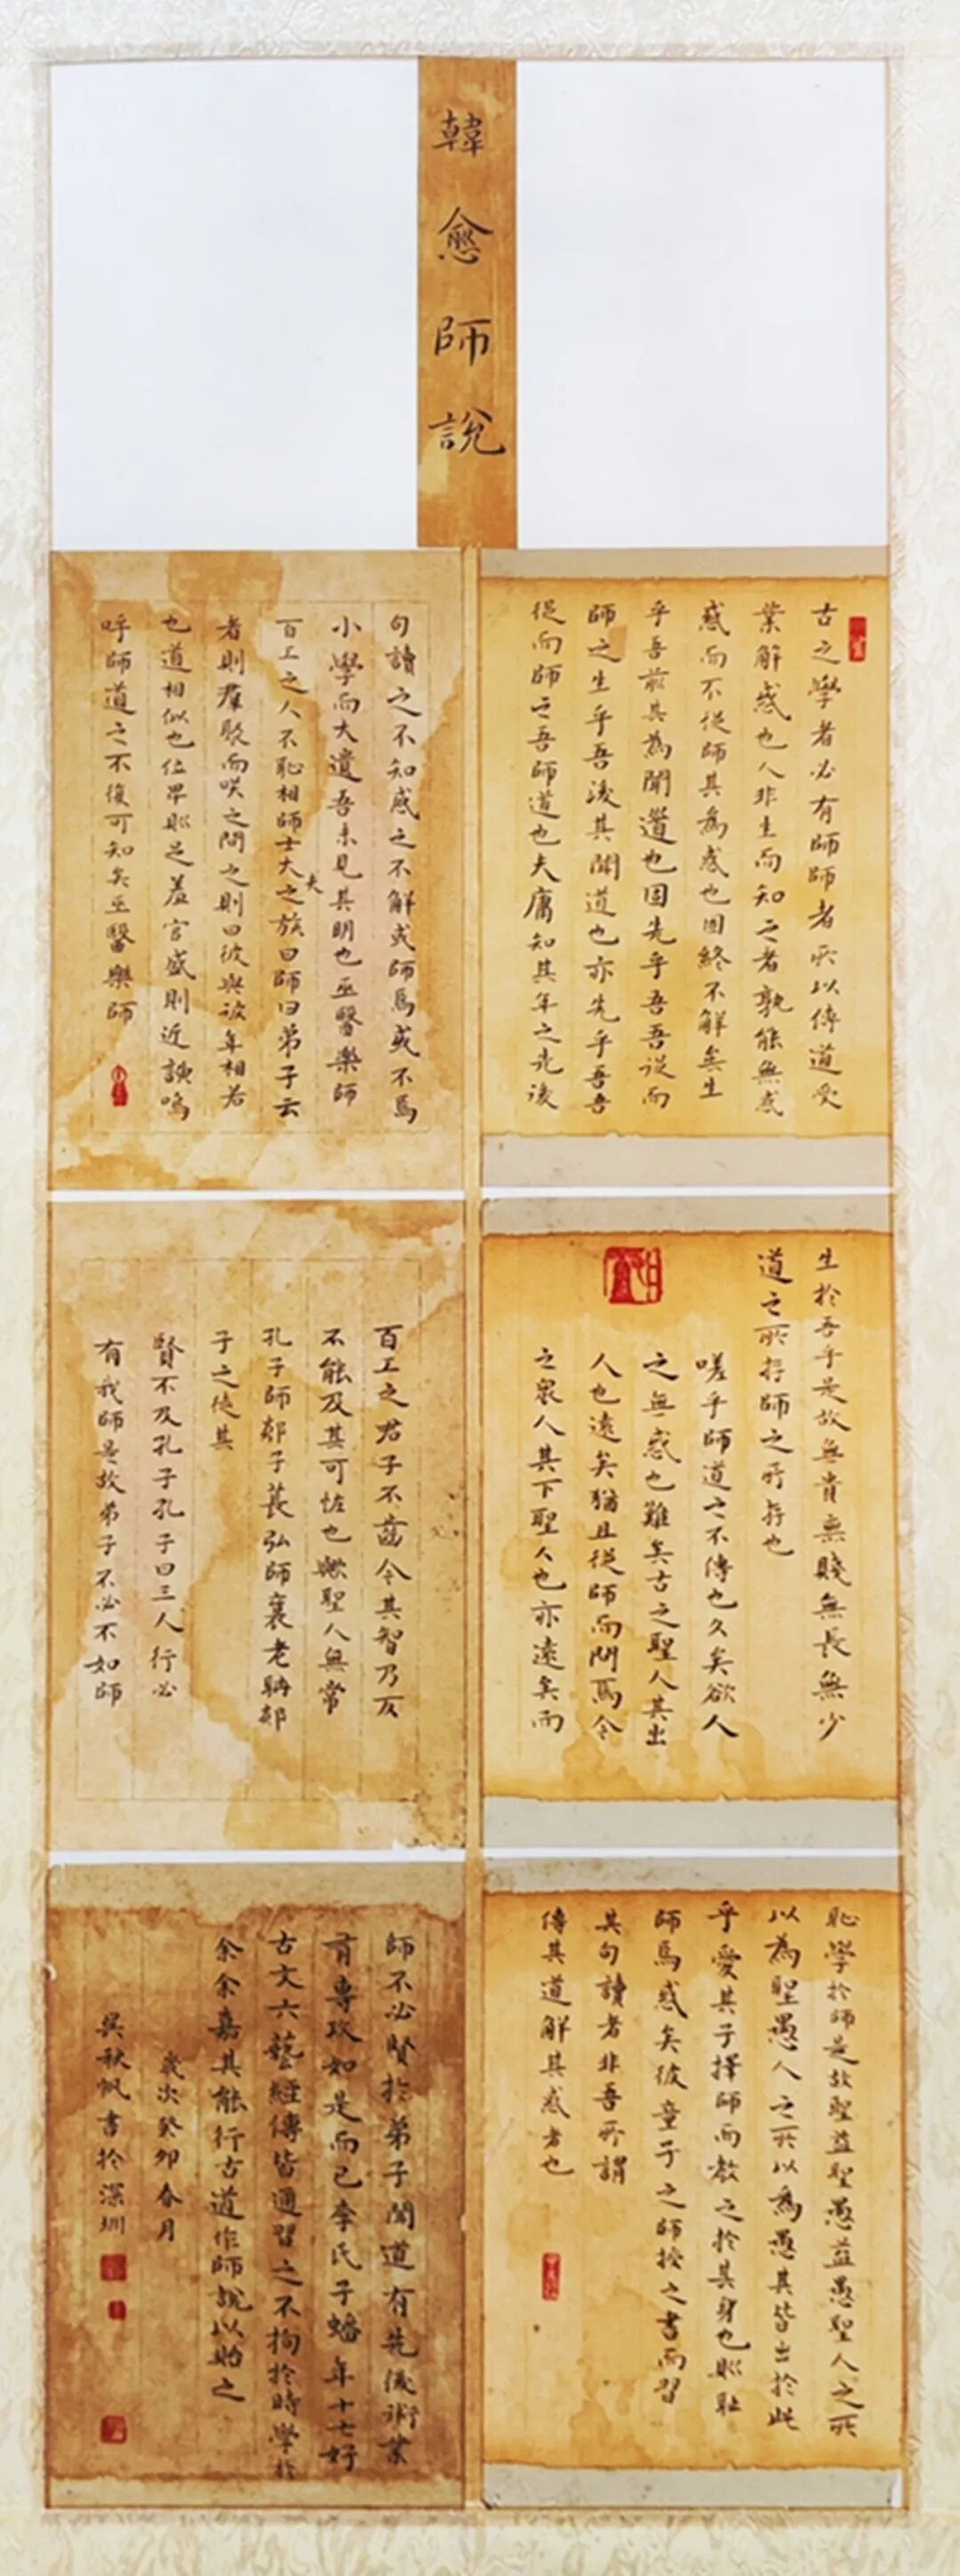 韓愈師說
古之學者必有師師者所以傳道受
業解惑也人非生而知之者孰能無惑
惑而不從師其為惑也固終不解矣生
乎吾前其為聞道也固先乎吾吾從而
師之生乎吾後其聞道也亦先乎吾吾
從而師之吾師道也夫庸知其年之先後
生於吾乎是故無貴無賤無長無少
道之所存師之所存也
嗟乎師道之不傳也久矣欲人
之無惑也難矣古之聖人其出
人也遠矣猶且從師而問焉今
之衆人其下聖人也亦遠矣而
恥學於師是故聖益聖愚益愚聖人之所
以為聖愚人之所以為愚其皆出於此
乎愛其子擇師而教之於其身也則恥
師焉惑矣彼童子之師授之書而習
其句讀者非吾所謂
傳其道解其惑者也
句讀之不知惑之不解或師焉或不焉
小學而大遺吾未見其明也巫醫樂師
百工之人不恥相師士大夫之族曰師曰弟子云
者則群聚而咲之問之則曰彼與彼年相若
也道相似也位卑則足羞官盛則近諛嗚
呼師道之不復可知矣巫醫樂師
百工之君子不齒今其智乃反
不能及其可怪也歟聖人無常
孔子師郯子萇弘師襄老聃郯
子之徒其
賢不及孔子孔子曰三人行必
有我師是故弟子不必不如師
師不必賢於弟子聞道有先後術業
有專攻如是而已李氏子蟠年十七好
古文六藝經傳皆通習之不拘於時學於
余余嘉其能行古道作師說以貽之
歲次癸卯春月
吳秋帆書於深圳